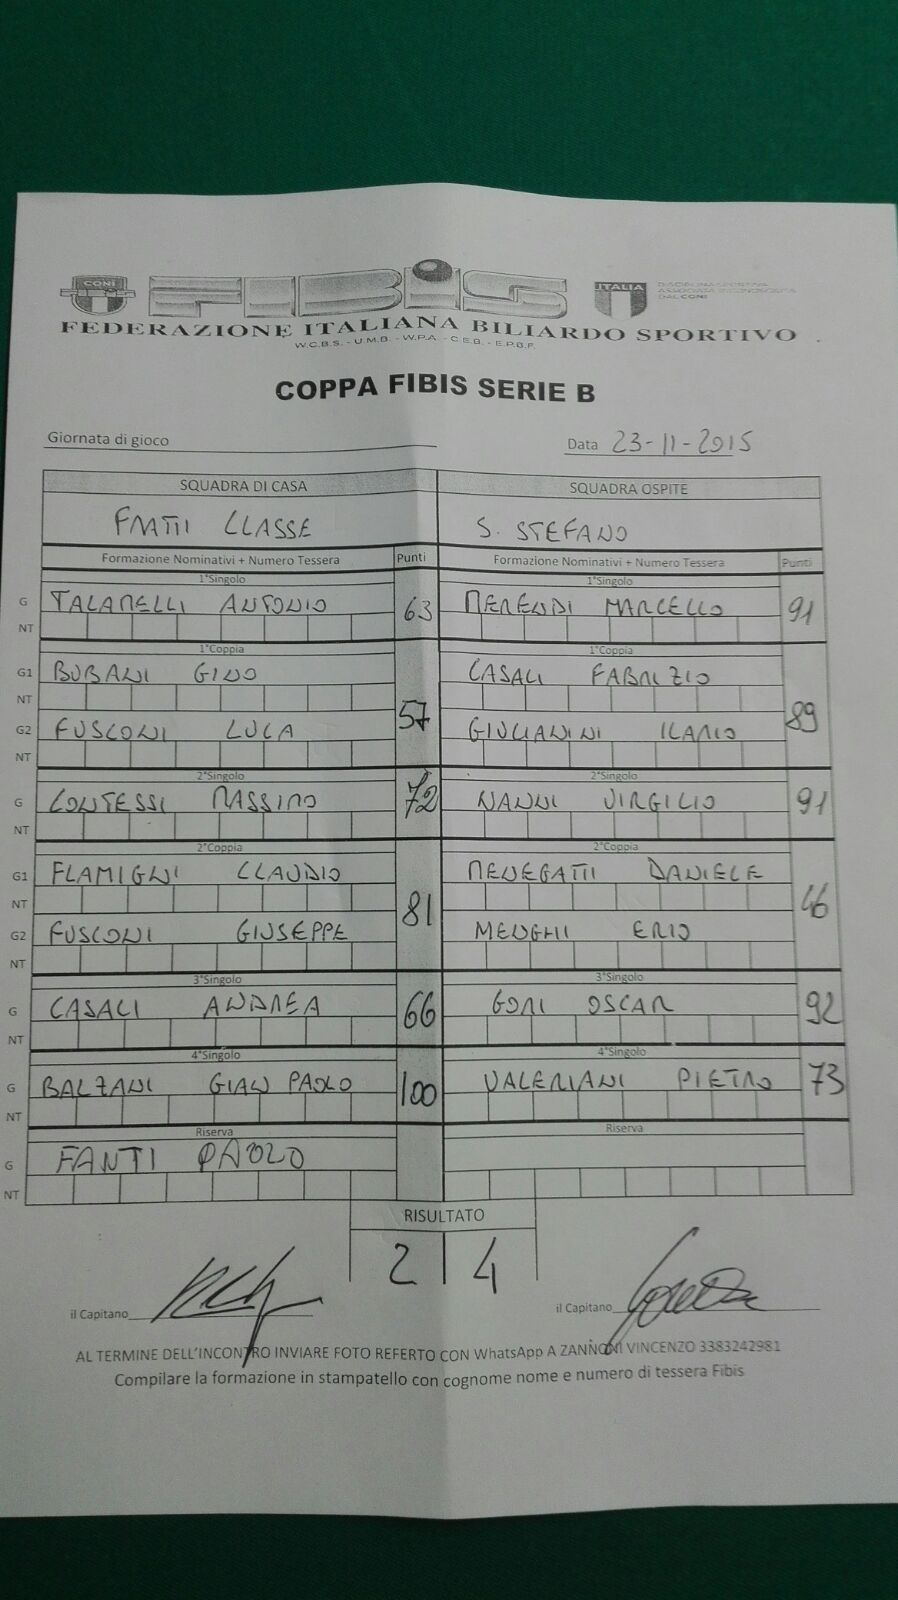 CONI
FIBiS
ITALIA
DISCIPLINA SPORTIVA
ASSOCIATA RICONOSCIUTA
DAL CONI
FEDERAZIONE ITALIANA BILIARDO SPORTIVO
W.C.B.S. - U.M.B. - W.P.A. - C.E.B. - E.P.B.F.
COPPA FIBIS SERIE B
Giornata di gioco Data 23-11-2015
SQUADRA DI CASA SQUADRA OSPITE
FRATTI CLASSE S. STEFANO
Formazione Nominativi + Numero Tessera Punti Formazione Nominativi + Numero Tessera Punti
1°Singolo 1°Singolo
G TALAMELLI ANTONIO 63 MERENDI MARCELLO 91
NT
1°Coppia 1°Coppia
G1 BUBANI GINO CASALI FABRIZIO
NT 57 89
G2 FUSCONI LUCA GIULIANINI ILARIO
NT
2°Singolo 2°Singolo
G CONTESSI MASSIMO 72 NANNI VIRGILIO 91
NT
2°Coppia 2°Coppia
G1 FLAMIGNI CLAUDIO MENEGATTI DANIELE
NT 81 46
G2 FUSCONI GIUSEPPE MENGHI ERIO
NT
3°Singolo 3°Singolo
G CASALI ANDREA 66 GORI OSCAR 92
NT
4°Singolo 4°Singolo
G BALZANI GIAN PAOLO 100 VALERIANI PIETRO 73
NT
Riserva Riserva
G FANTI PAOLO
NT
RISULTATO
2 4
il Capitano il Capitano
AL TERMINE DELL'INCONTRO INVIARE FOTO REFERTO CON WhatsApp A ZANNONI VINCENZO 3383242981
Compilare la formazione in stampatello con cognome nome e numero di tessera Fibis